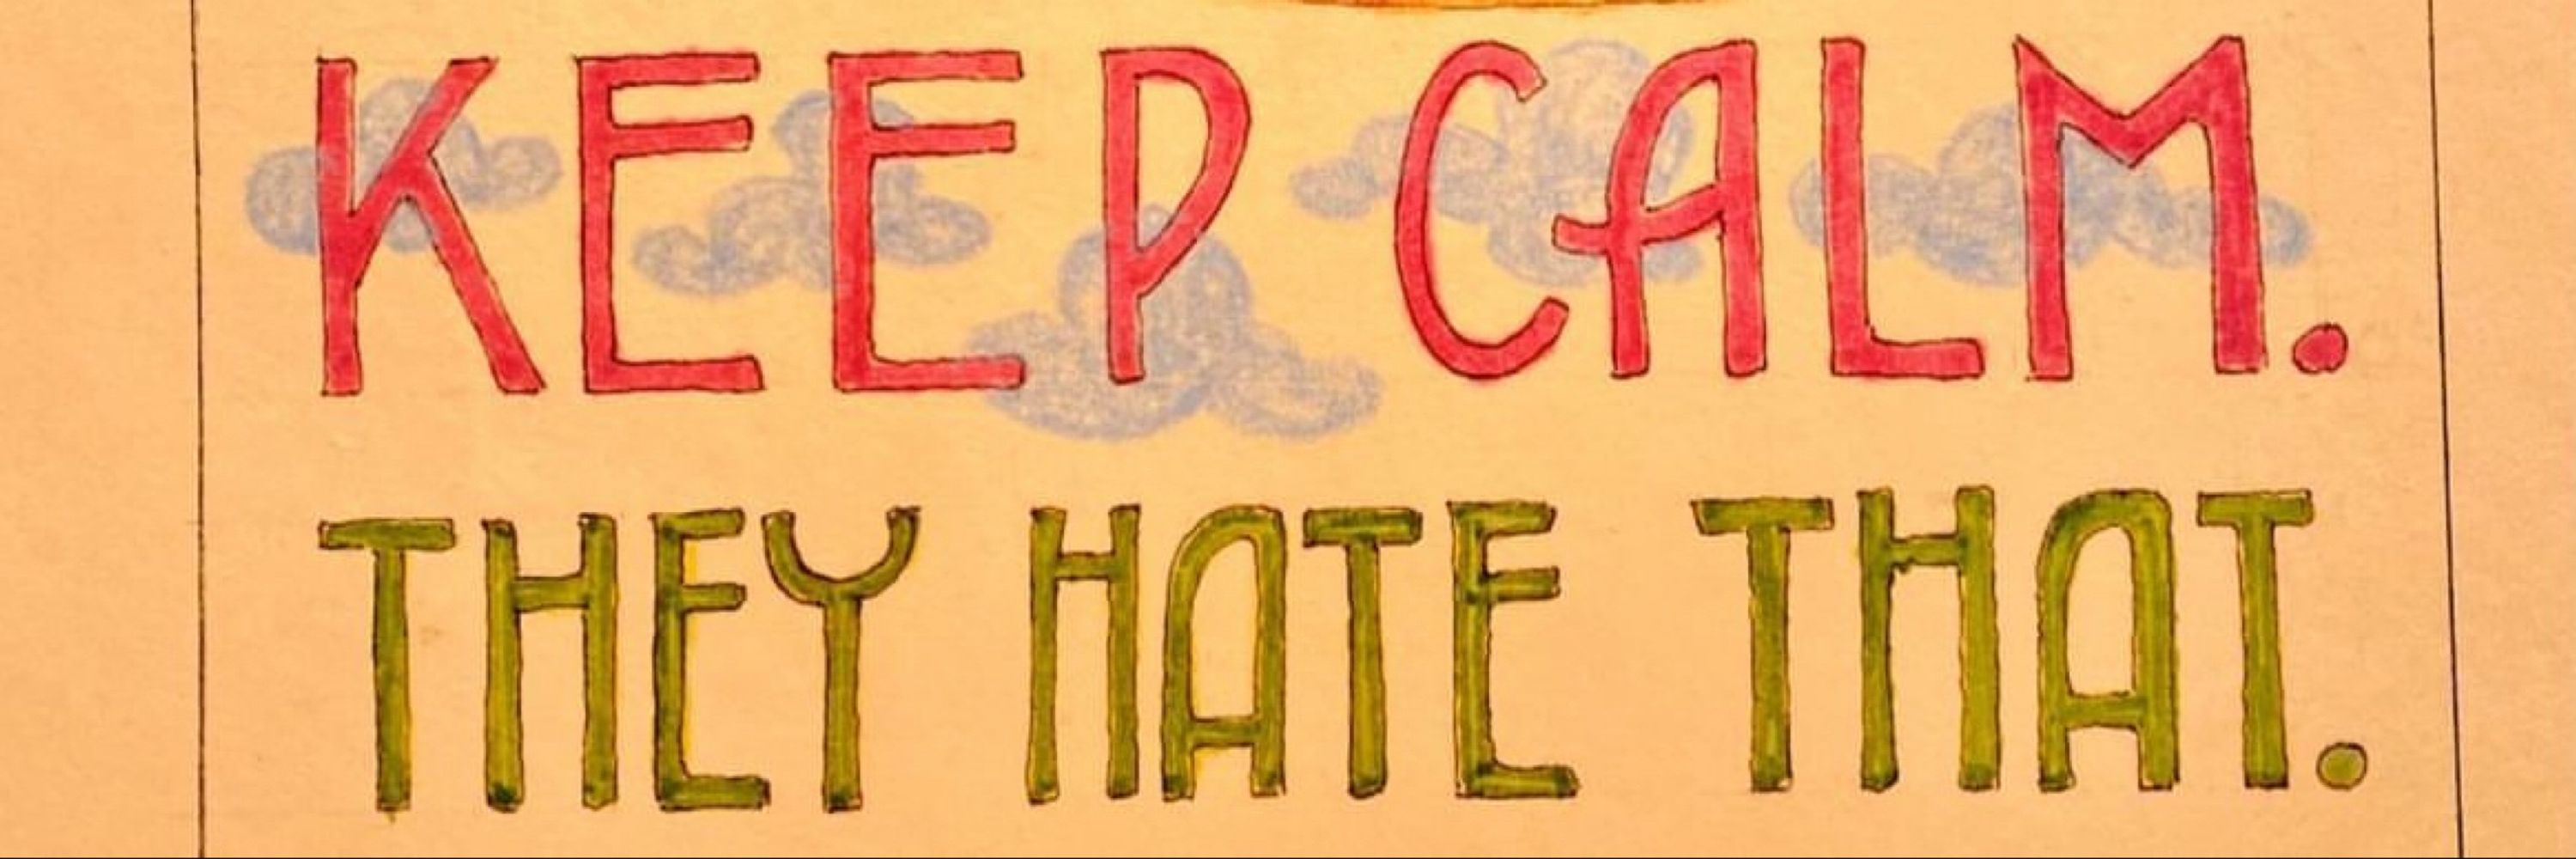 KEEP CALM.
THEY HATE THAT.